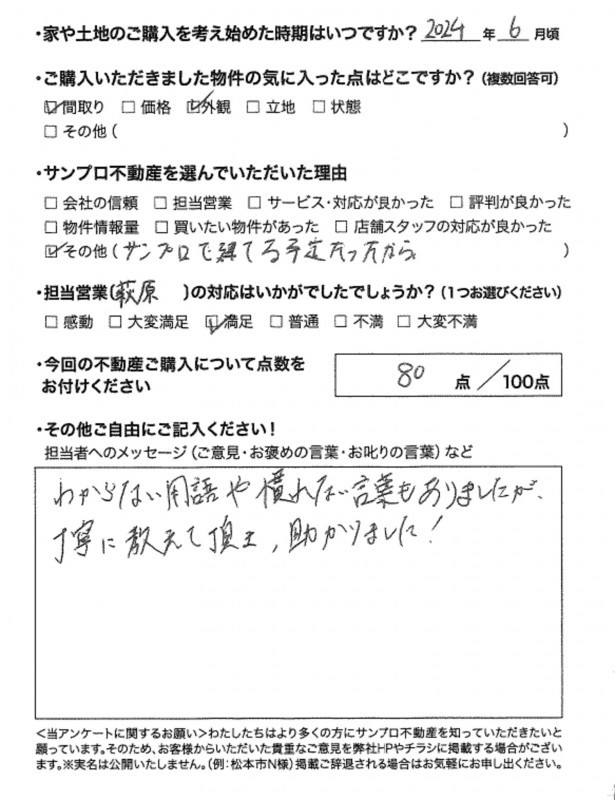 ・家や土地のご購入を考え始めた時期はいつですか？ 2024 年 6 月頃
・ご購入いただきました物件の気に入った点はどこですか？（複数回答可）
☑ 間取り □ 価格 ☑ 外観 □ 立地 □ 状態
□ その他（ ）
・サンプロ不動産を選んでいただいた理由
□ 会社の信頼 □ 担当営業 □ サービス・対応が良かった □ 評判が良かった
□ 物件情報量 □ 買いたい物件があった □ 店舗スタッフの対応が良かった
☑ その他（サンプロで建てる予定だったから ）
・担当営業（萩原 ）の対応はいかがでしたでしょうか？（1つお選びください）
□ 感動 □ 大変満足 ☑ 満足 □ 普通 □ 不満 □ 大変不満
・今回の不動産ご購入について点数を
お付けください
80 点 ／100点
・その他ご自由にご記入ください！
担当者へのメッセージ（ご意見・お褒めの言葉・お叱りの言葉）など
わからない用語や慣れない言葉もありましたが、
丁寧に教えて頂き、助かりました！
＜当アンケートに関するお願い＞わたしたちはより多くの方にサンプロ不動産を知っていただきたいと
願っています。そのため、お客様からいただいた貴重なご意見を弊社HPやチラシに掲載する場合がござい
ます。※実名は公開いたしません。（例：松本市N様）掲載ご辞退される場合はお気軽にお申し出ください。